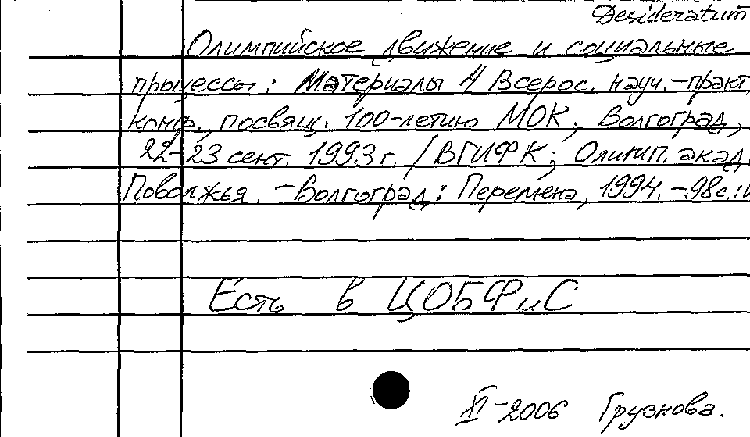 Desideratum
Олимпийское движение и социальные
процессы: Материалы 4 Всерос. науч.-практ.
конф., посвящ. 100-летию МОК; Волгоград,
22-23 сент. 1993 г. / ВГИФК; Олимп. акад.
Поволжья. - Волгоград: Перемена, 1994. - 98 с.: и
Есть в ЦОБФиС
XI-2006 Грузнова.